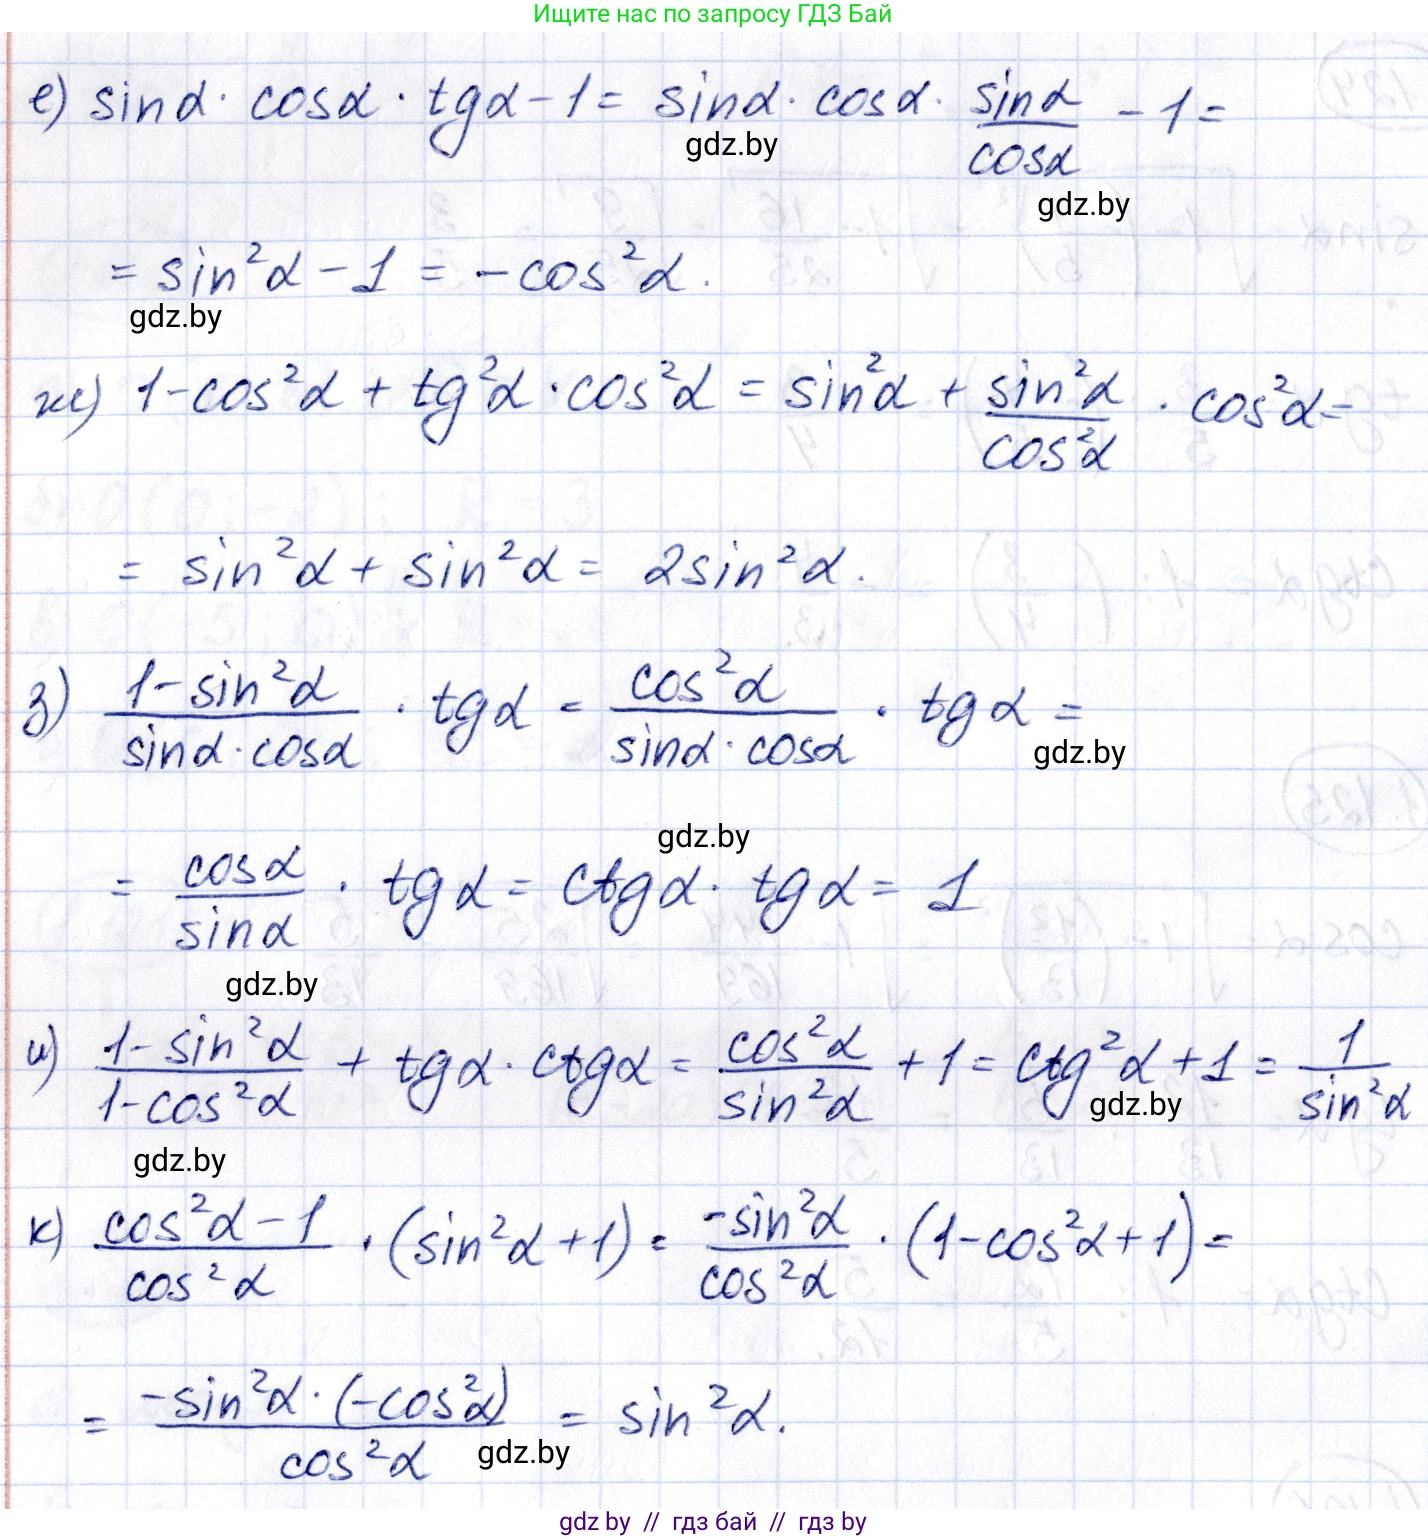 Ищите нас по запросу ГДЗ Бай
е) sinα · cosα · tgα - 1 = sinα · cosα · sinα/cosα - 1 =
gdz.by
gdz.by
= sin²α - 1 = -cos²α.
gdz.by
ж) 1 - cos²α + tg²α · cos²α = sin²α + sin²α/cos²α · cos²α =
= sin²α + sin²α = 2sin²α.
з) 1-sin²α/sinα·cosα · tgα = cos²α/sinα·cosα · tgα =
gdz.by
gdz.by
= cosα/sinα · tgα = ctgα · tgα = 1
gdz.by
и) 1-sin²α/1-cos²α + tgα · ctgα = cos²α/sin²α + 1 = ctg²α + 1 = 1/sin²α
gdz.by
gdz.by
к) cos²α - 1/cos²α · (sin²α + 1) = -sin²α/cos²α · (1-cos²α + 1) =
= -sin²α · (-cos²α)/cos²α = sin²α.
gdz.by
gdz by // гдз бай // гдз by